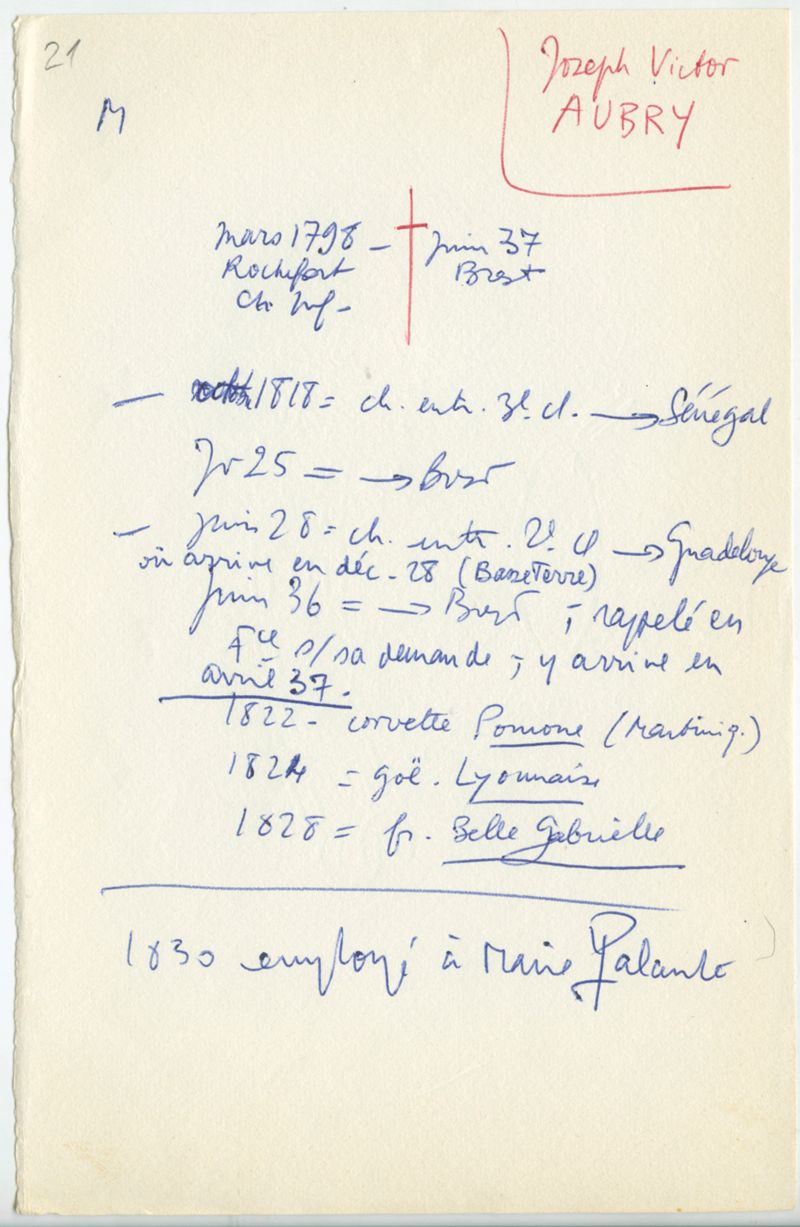 21
Joseph Victor
AUBRY
M
mars 1798 – † juin 37
Rochefort Brest
Ch. Inf –
— 1818 = ch. entr. 3e. cl. → Sénégal
Jr 25 = → Brest
— juin 28 = ch. entr. 2e. cl → Guadeloupe
où arrive en déc. 28 (BasseTerre)
juin 36 = → Brest ; rappelé en
Fce s/sa demande ; y arrive en
avril 37.
1822 – corvette Pomone (Martiniq.)
1824 = goë. Lyonnaise
1828 = fr. Belle Gabrielle
1830 employé à Marie Galante